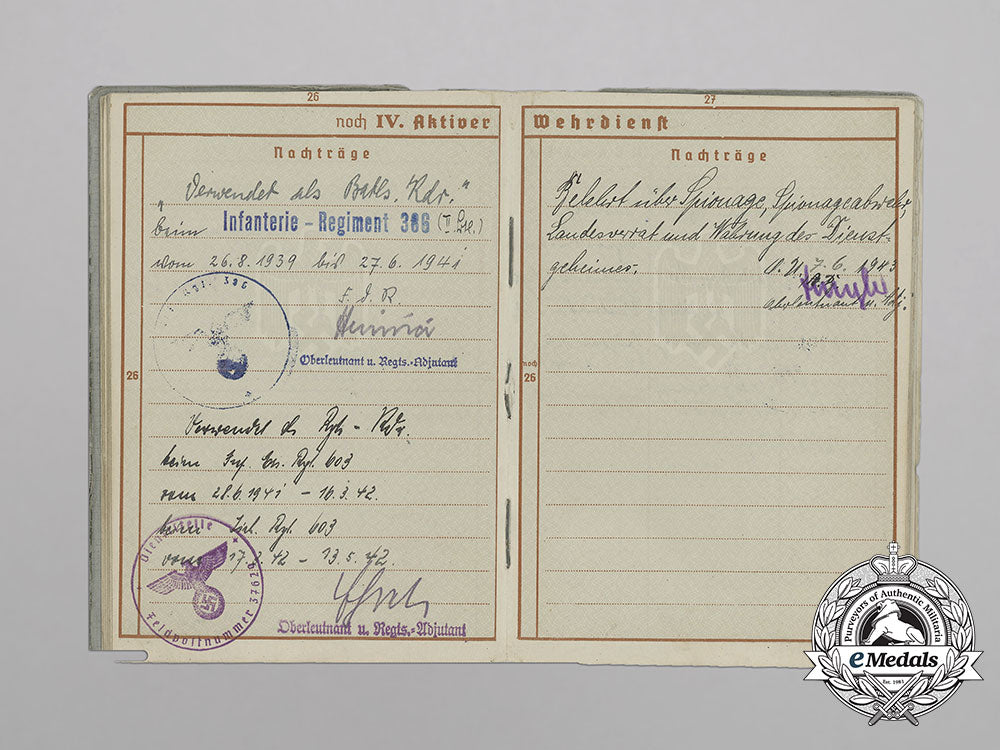 26
noch IV. Aktiver
Nachträge
„Verwendet als Batls. Kdr.“
beim Infanterie-Regiment 386
vom 26.8.1939 bis 27.6.1941
F.d.R.
Oberleutnant u. Regts.-Adjutant
26
Verwendet als Rgts-Kdr.
beim Inf. Ers. Rgt. 603
vom 28.6.1941 - 16.3.42.
beim Rgt. 603
vom 17.3.42 - 13.5.42.
Dienststelle
Feldpostnummer 37628
Oberleutnant u. Regts.-Adjutant
27
Wehrdienst
Nachträge
Belehrt über Spionage, Spionageabwehr,
Landesverrat und Wahrung des Dienst-
geheimes. O.U. 7.6.1943
Oberleutnant u. Adj.
noch
26
Purveyors of Authentic Militaria
eMedals
Est. 1985